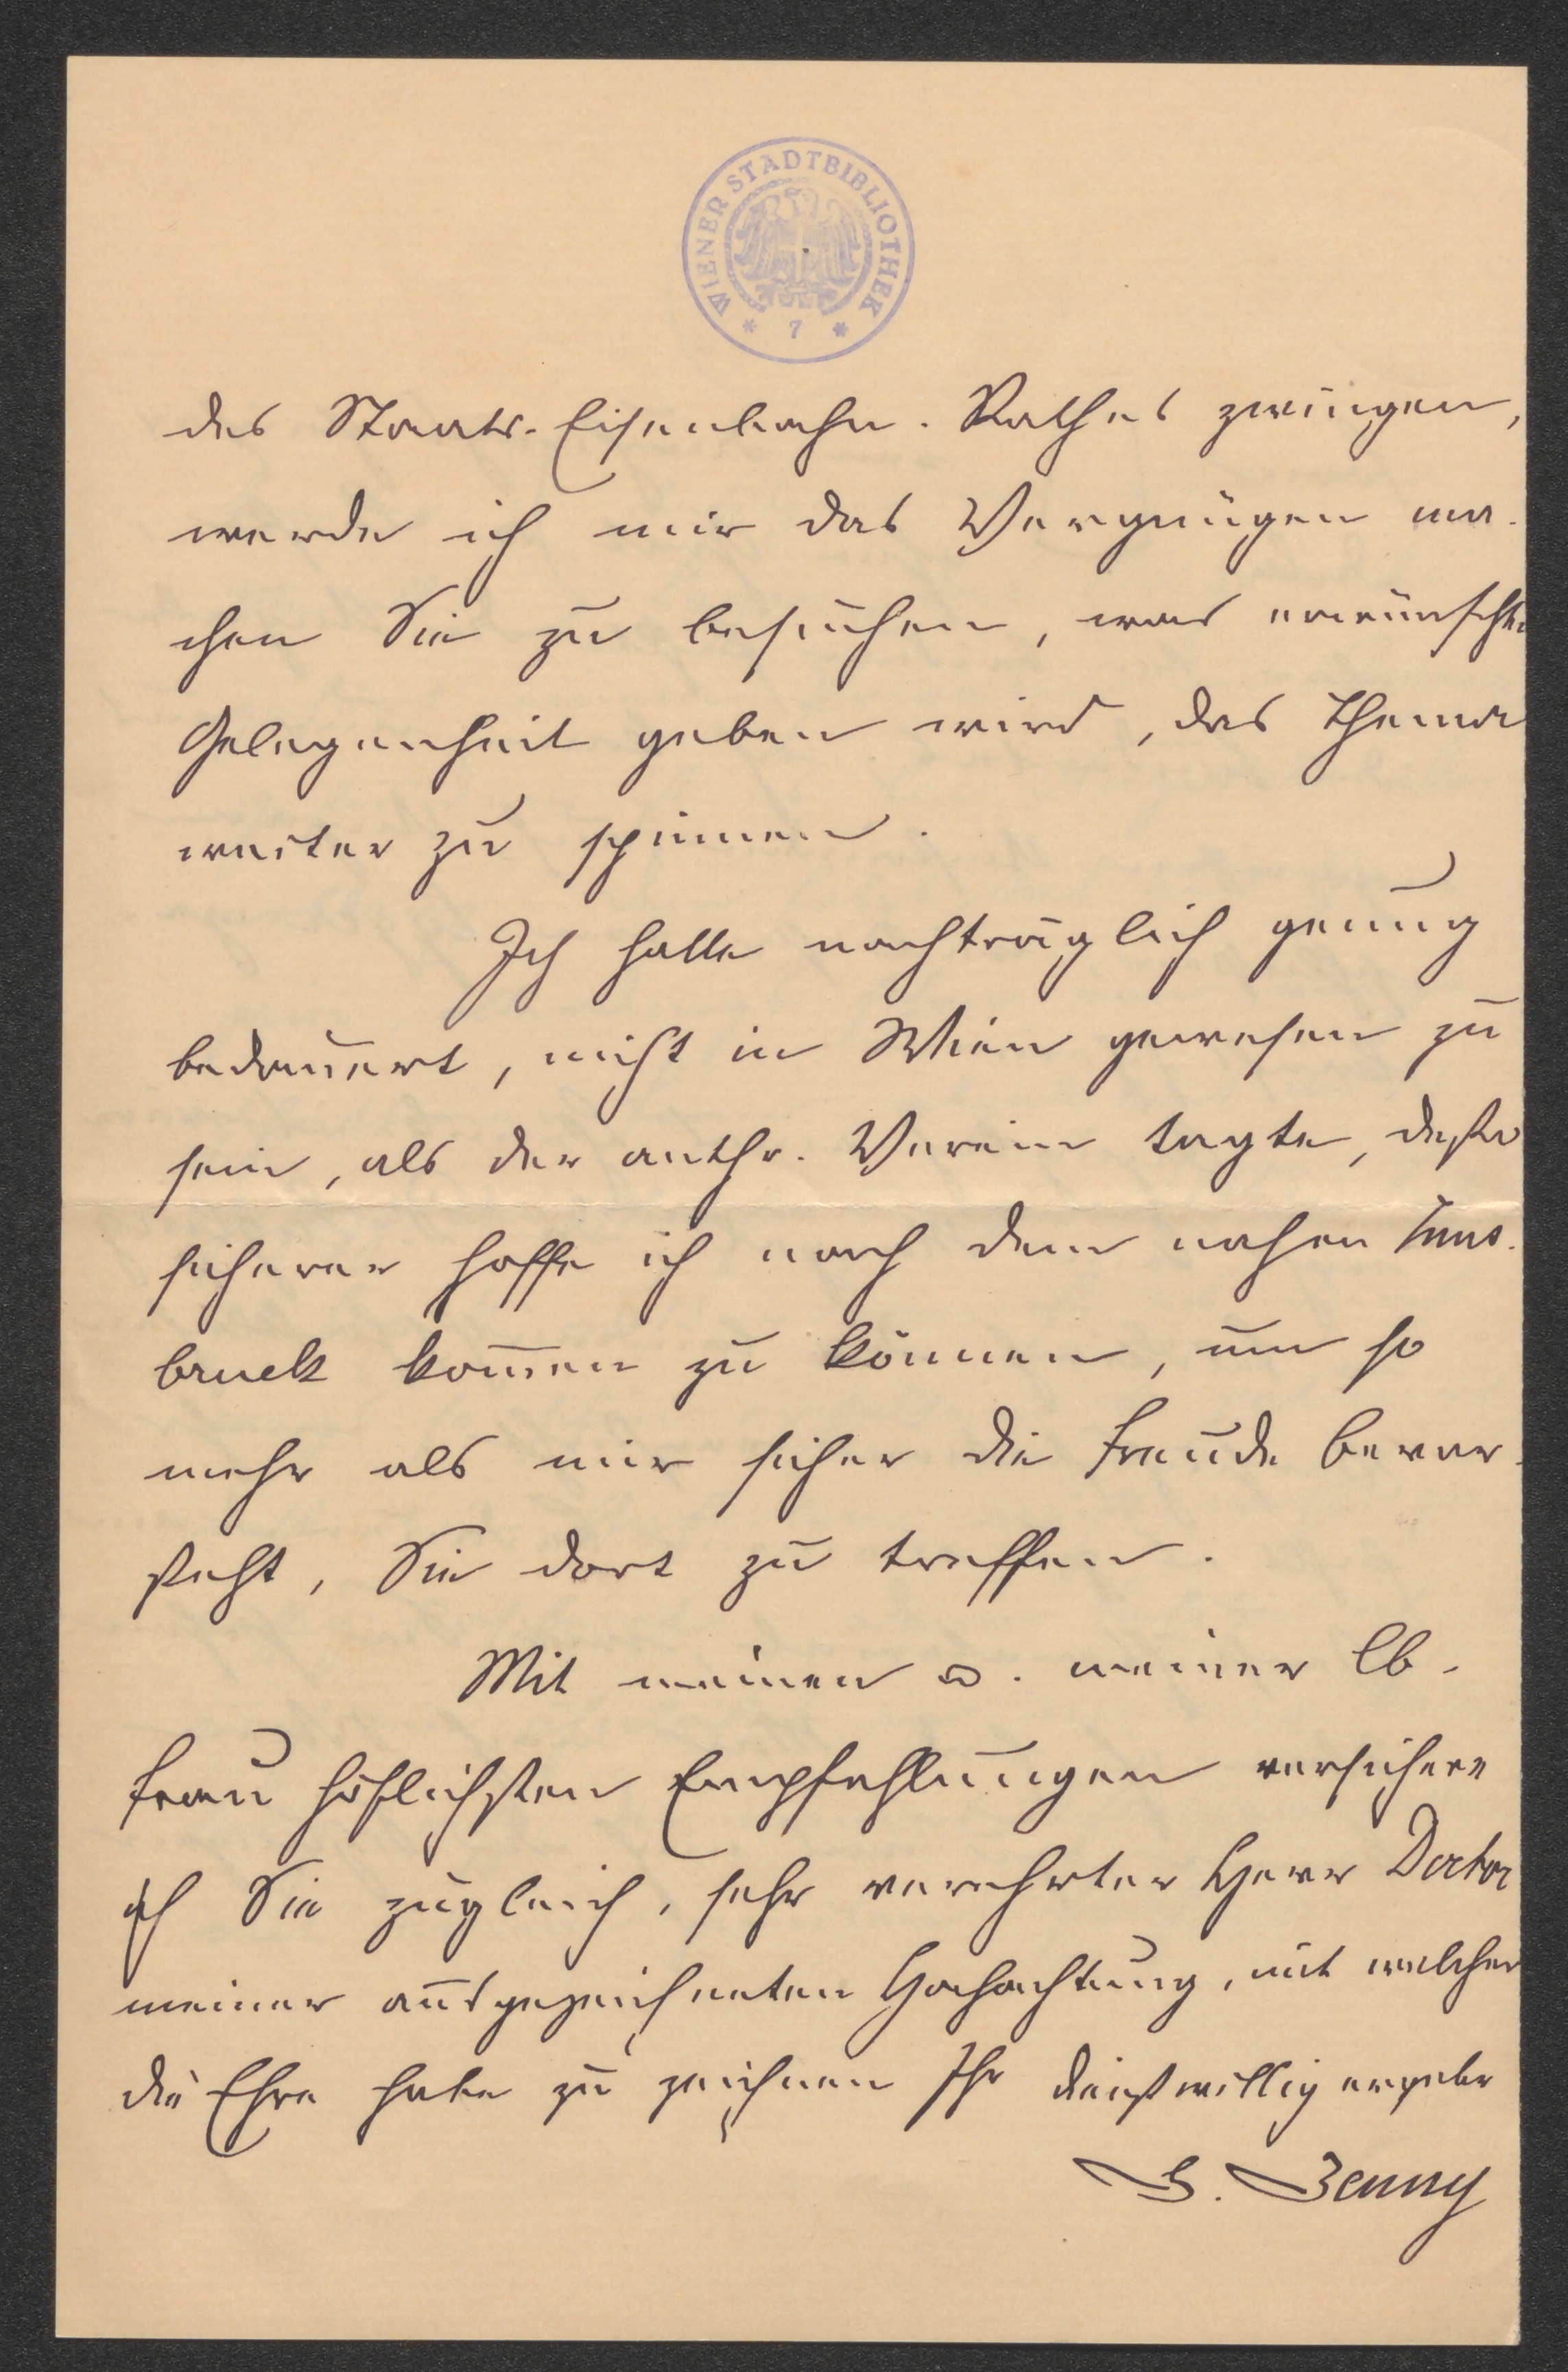 WIENER STADTBIBLIOTHEK
* 7 *
des Staats-Eisenbahn-Rathes zwingen,
werde ich mir das Vergnügen ma-
chen Sie zu besuchen, was erwünschte
Gelegenheit geben wird, das Thema
weiter zu spinnen.
Ich hatte nachträglich genug
bedauert, nicht in Wien gewesen zu
sein, als der anthr. Verein tagte, desto
sicherer hoffe ich nach dem nahen Inns-
bruck kom̅en zu können, um so
mehr als mir sicher die Freude bevor-
steht, Sie dort zu treffen.
Mit meinen u. meiner lb.
Frau höflichsten Empfehlungen versichere
ich Sie zugleich, sehr verehrter Herr Doctor
meiner ausgezeichneten Hochachtung, mit welcher
die Ehre habe zu zeichnen Ihr dienstwillig ergebr
S. Jenny